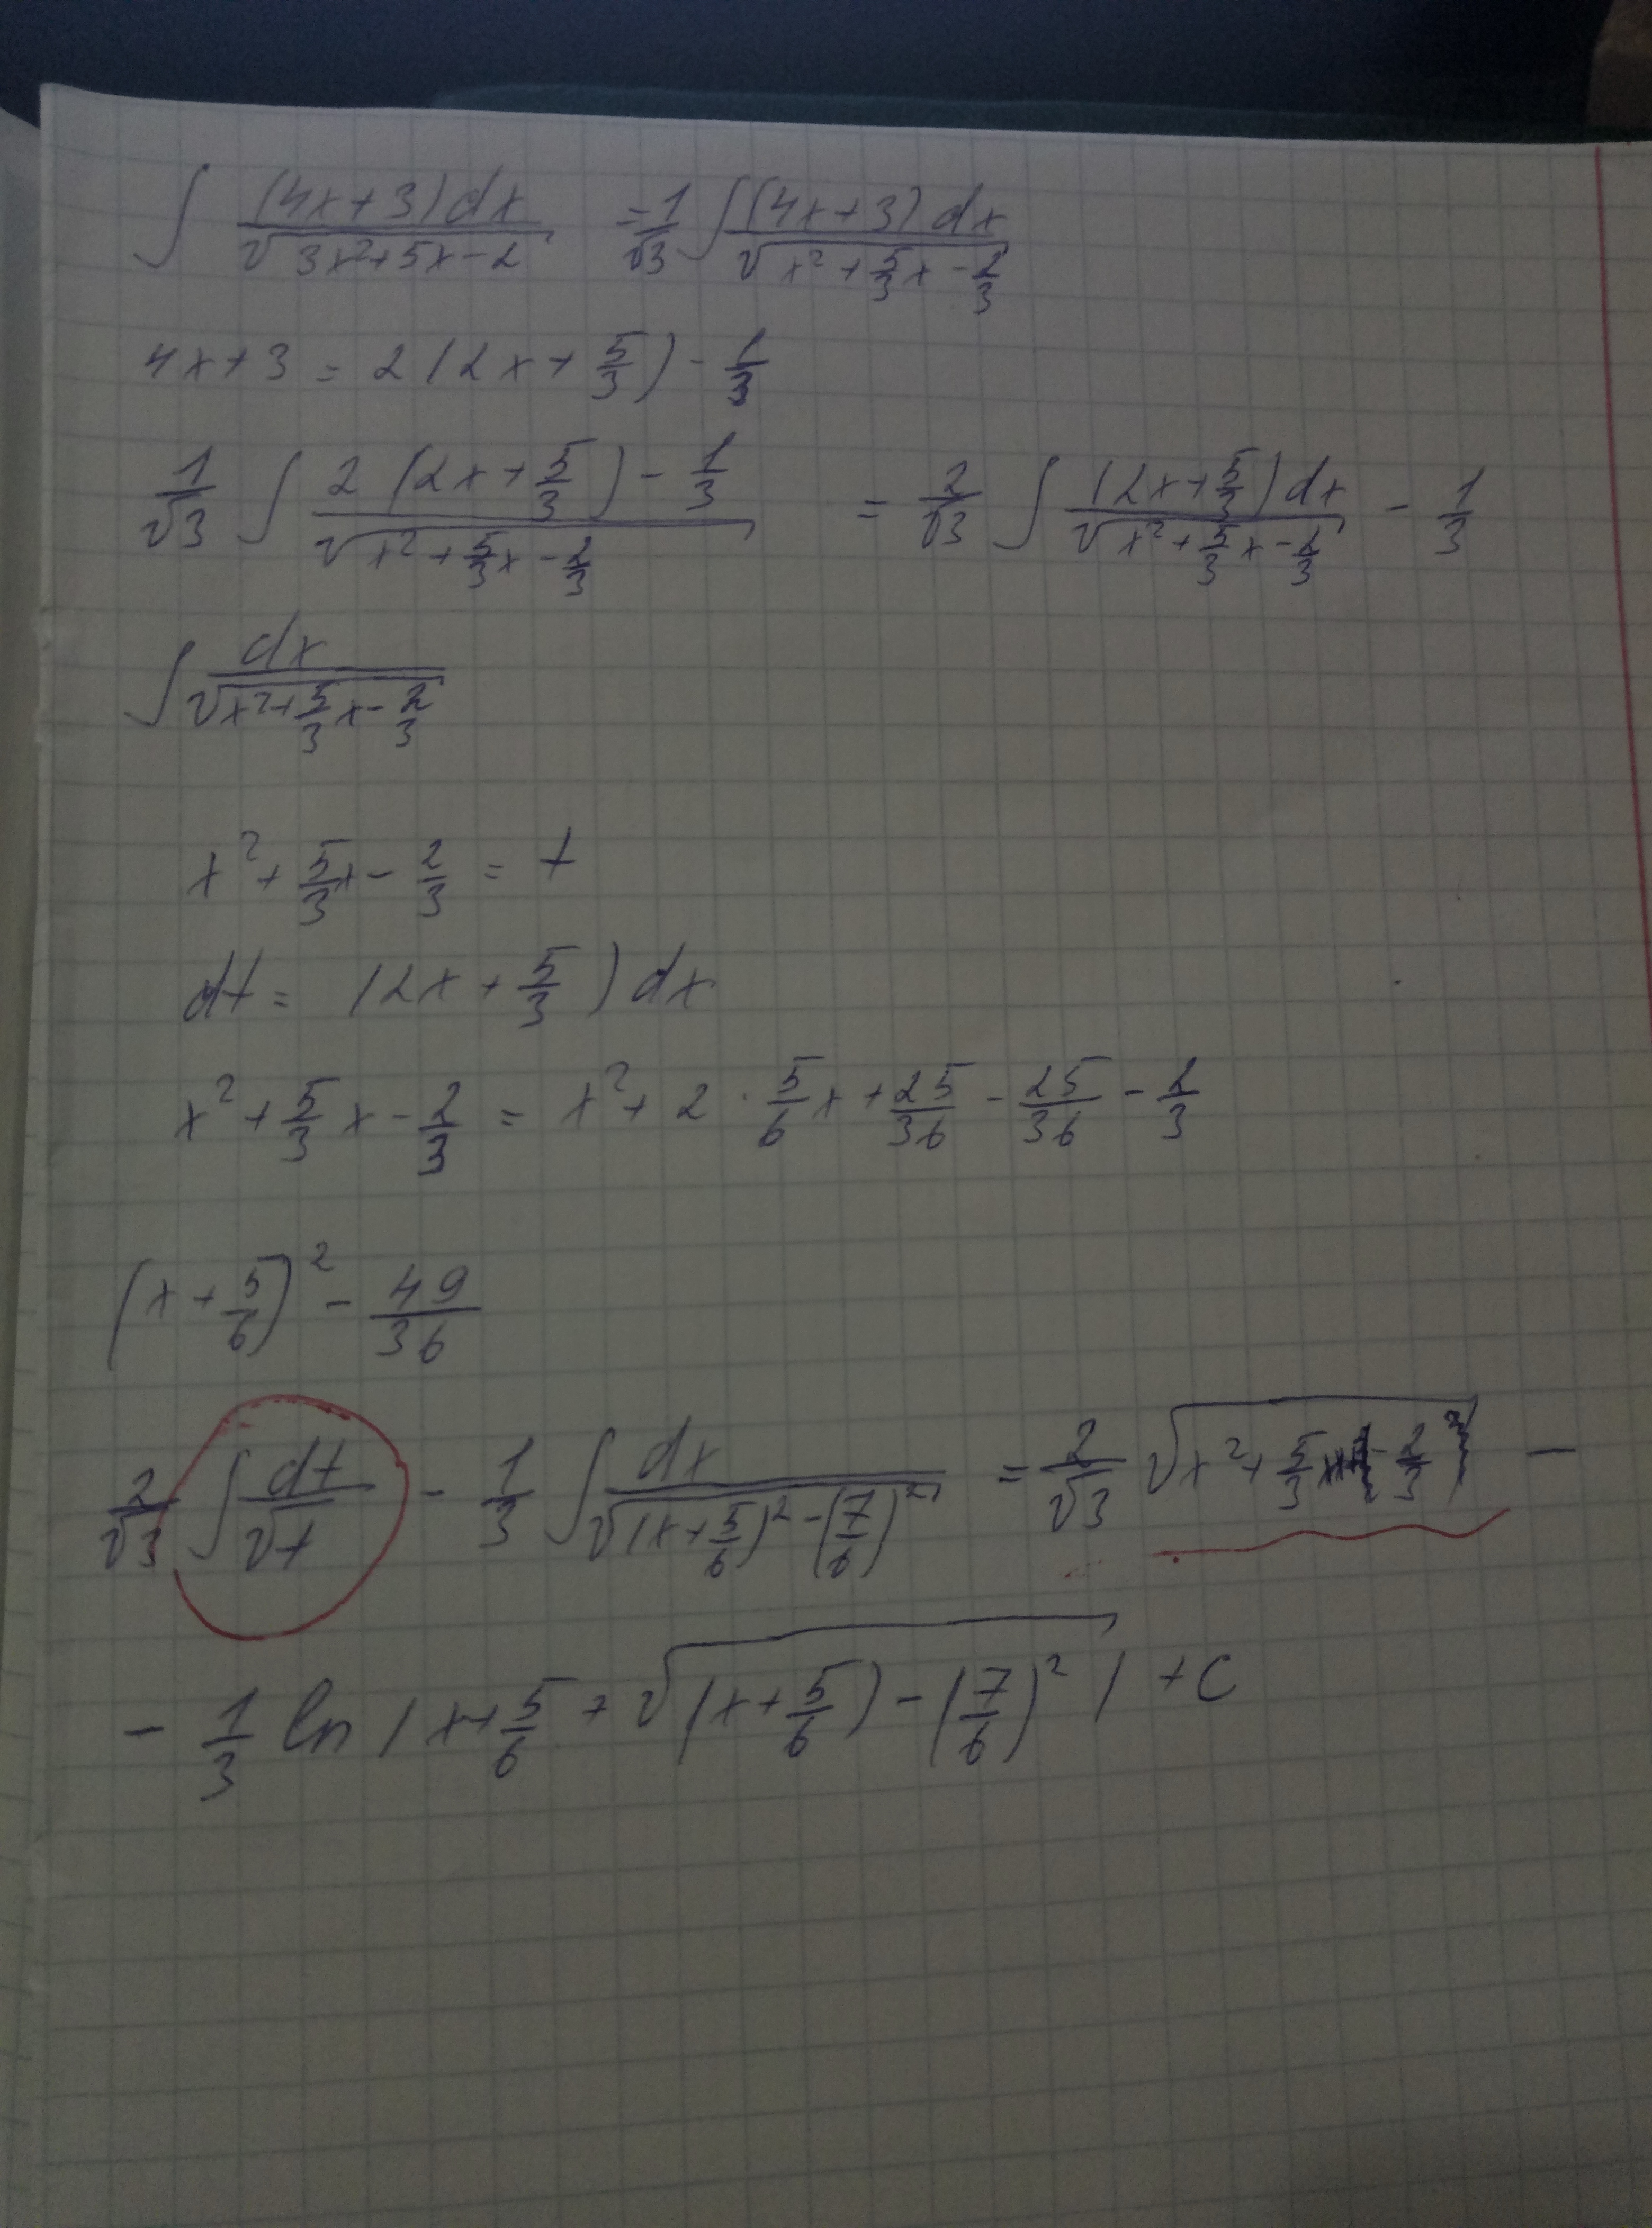 ∫ (4x+3)dx / √(3x²+5x-2) = 1/√3 ∫ (4x+3)dx / √(x²+5/3x-2/3)
4x+3 = 2(2x+5/3) - 1/3
1/√3 ∫ (2(2x+5/3) - 1/3) / √(x²+5/3x-2/3) = 2/√3 ∫ (2x+5/3)dx / √(x²+5/3x-2/3) - 1/3
∫ dx / √(x²+5/3x-2/3)
x²+5/3x-2/3 = t
dt = (2x+5/3)dx
x²+5/3x-2/3 = x²+2·5/6x+25/36-25/36-2/3
(x+5/6)² - 49/36
2/√3 ∫ dt/√t - 1/3 ∫ dx / √((x+5/6)²-(7/6)²) = 2/√3 √(x²+5/3x-2/3) -
- 1/3 ln |x+5/6+√((x+5/6)-(7/6)²)| + C